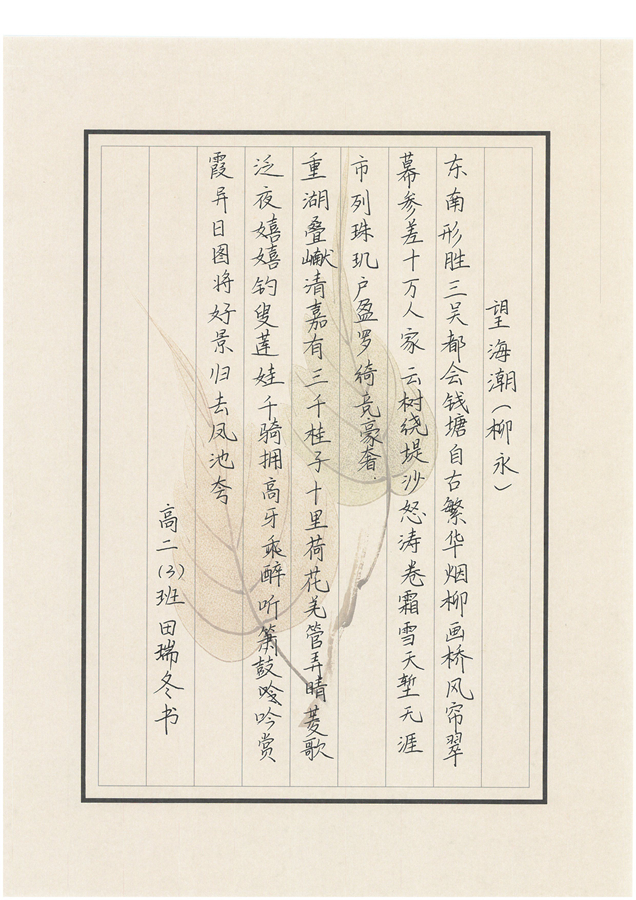 望海潮(柳永)
东南形胜三吴都会钱塘自古繁华烟柳画桥风帘翠
幕参差十万人家云树绕堤沙怒涛卷霜雪天堑无涯
市列珠玑户盈罗绮竞豪奢.
重湖叠𪩘清嘉有三千桂子十里荷花羌管弄晴菱歌
泛夜嬉嬉钓叟莲娃千骑拥高牙乘醉听箫鼓吟赏
霞异日图将好景归去凤池夸
高二(3)班田瑞冬书